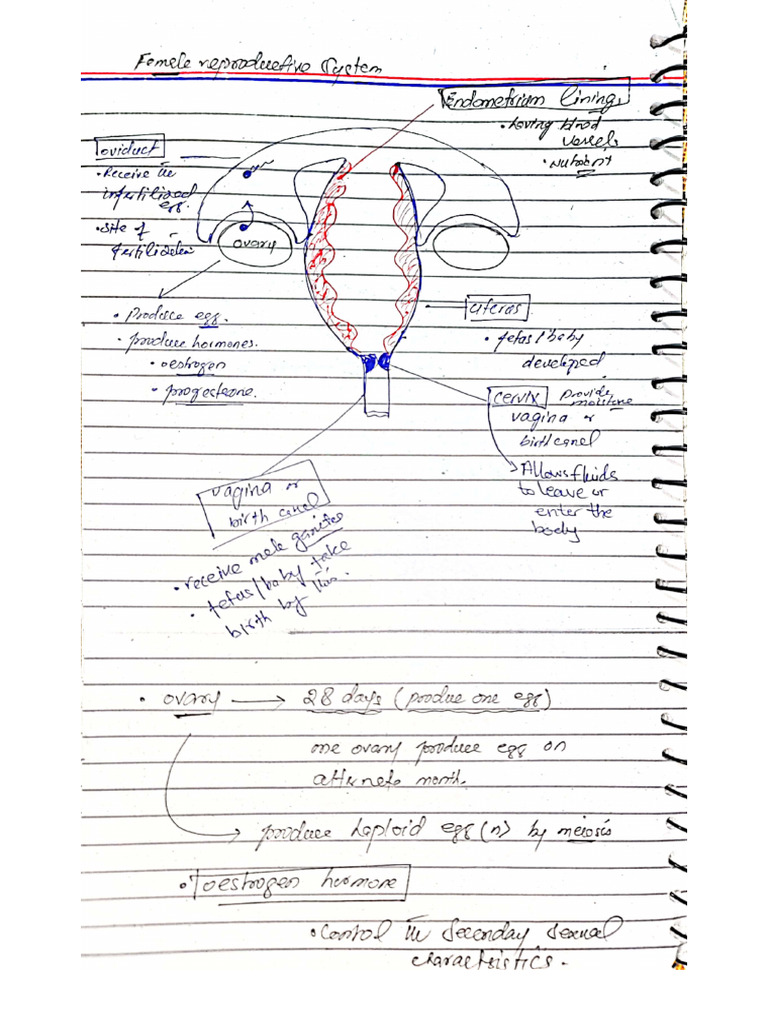 Femele reproductive System
Endometrium lining
• having blood
vessels
• Nutrient
oviduct
• Receive the
infertilized
egg.
• site of
fertilization
ovary
• Produce egg.
• produce hormones.
• oestrogen
• progesteone.
uteras
• fetas/baby
developed
cervix provide
moisture
vagina or
birth canel
Allows fluids
to leave or
enter the
body
vagina or
birth canel
• receive male ganities
• fetus/baby take
birth by this.
• ovary → 28 days (produe one egg)
one ovary produce egg on
alternets month.
→ produce haploid egg (n) by meiosis
• oestrogen hormone
• Control the Seconday sexual
characteristics.